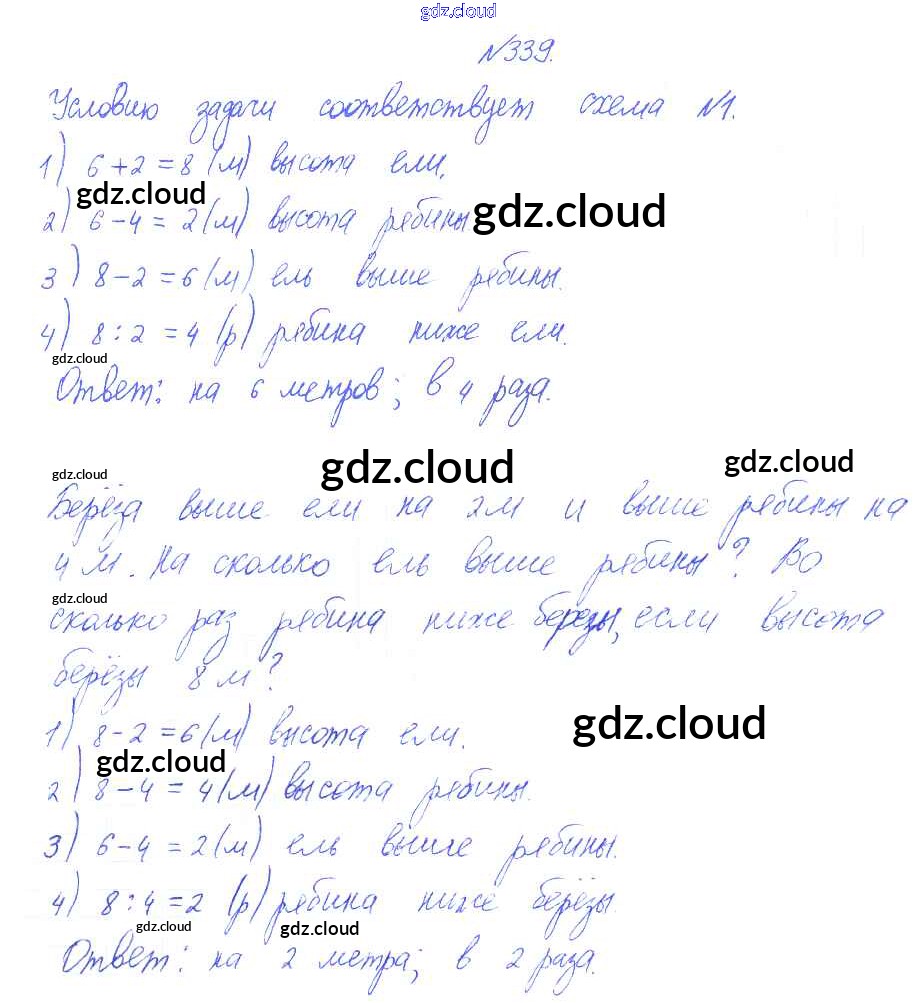 gdz.cloud
№339.
Условию задачи соответствует схема №1.
1) 6+2=8 (м) высота ели.
gdz.cloud
2) 6-4=2(м) высота рябины gdz.cloud
3) 8-2=6(м) ель выше рябины.
4) 8:2=4 (р) рябина ниже ели.
gdz.cloud
Ответ: на 6 метров; в 4 раза.
gdz.cloud gdz.cloud gdz.cloud
Берёза выше ели на 2м и выше рябины на
4 м. На сколько ель выше рябины? Во
gdz.cloud
сколько раз рябина ниже березы, если высота
берёзы 8 м?
1) 8-2=6(м) высота ели. gdz.cloud
gdz.cloud
2) 8-4=4(м) высота рябины.
3) 6-4=2(м) ель выше рябины.
4) 8:4=2 (р) рябина ниже берёзы.
gdz.cloud gdz.cloud
Ответ: на 2 метра; в 2 раза.